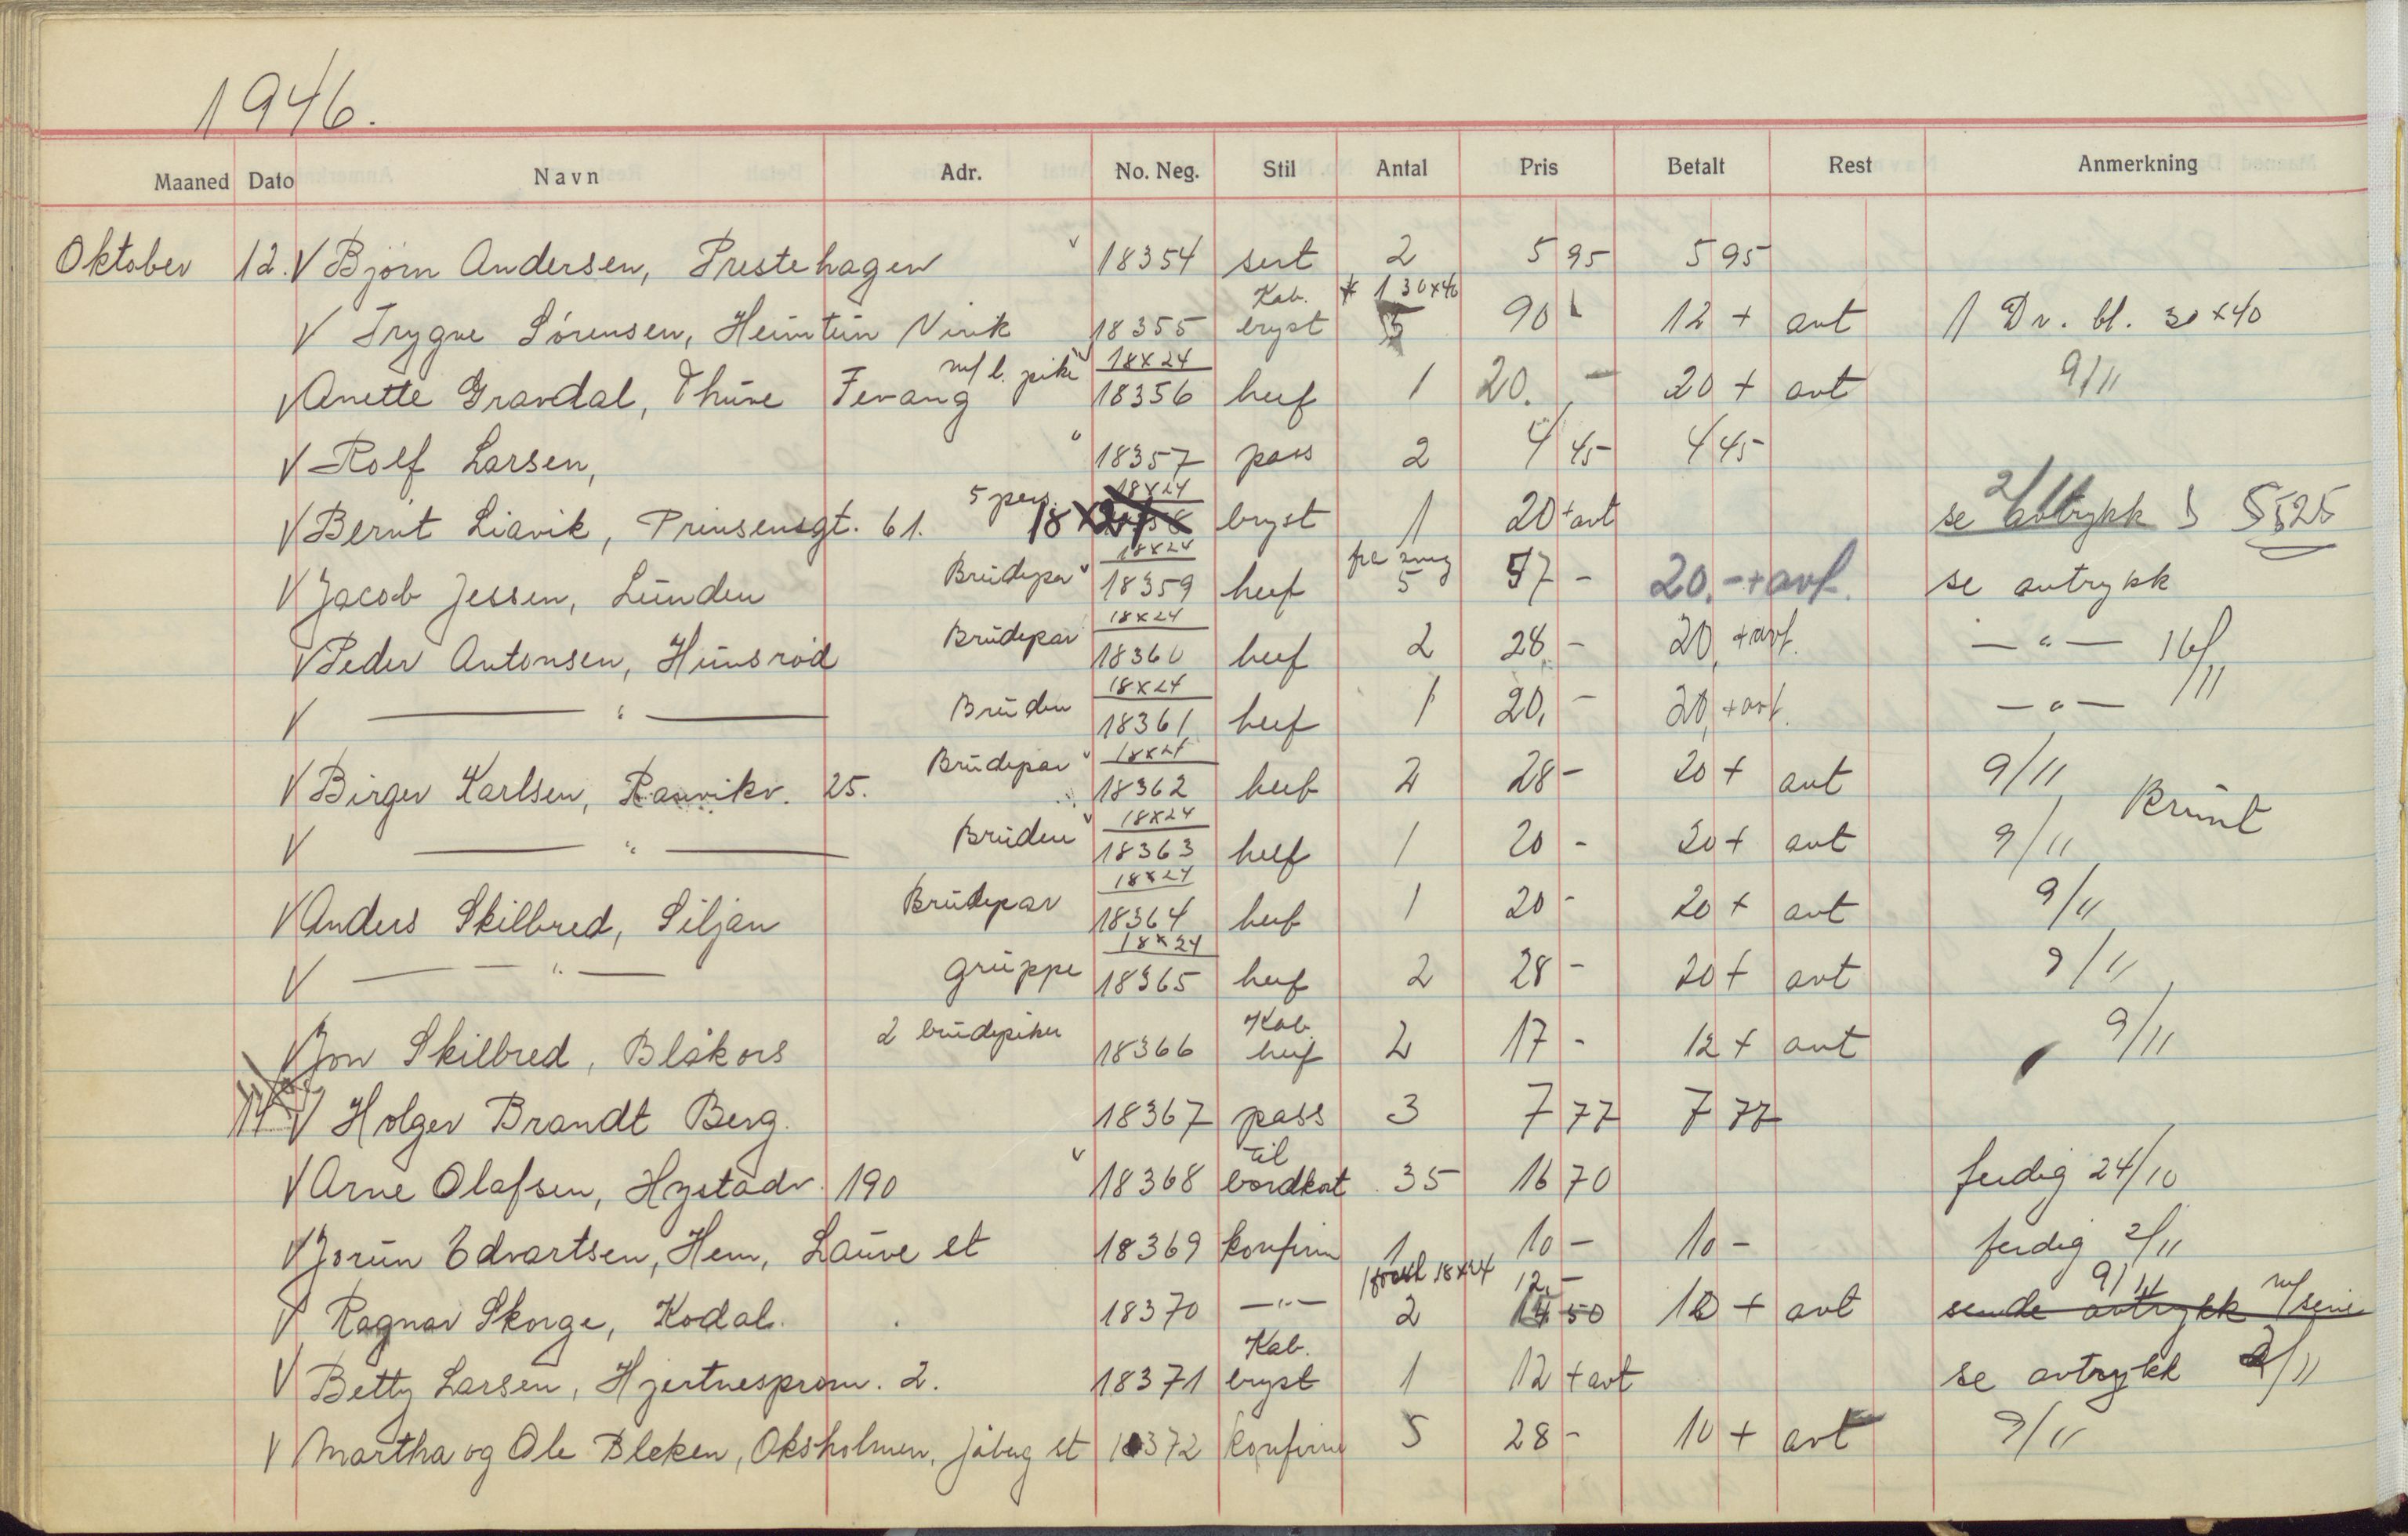 1946.
Maaned Dato Navn Adr. No. Neg. Stil Antal Pris Betalt Rest Anmerkning
Oktober 12. V Bjørn Andersen, Prestehagen 18354 sert 2 5 95 5 95
V Trygve Sørensen, Heimtun Virik 18355 Kab. bryst 1 30x40 5 90 - 12 + avt 1 Dv. bl. 30x40
V Anette Gravdal, Thure Fevang m/ l. pike 18x24 18356 heif 1 20. - 20 + avt 9/11
V Rolf Larsen, " 18357 pass 2 4 45- 4 45-
V Bernt Liavik, Prinsensgt. 61. 5 pers. 18x24 bryst 1 20 + avt se avtrykk 2/11 5525
V Jacob Jessen, Lunden Brudepar 18x24 18359 heif 5 57 - 20.- + avt. se avtrykk
V Peder Antonsen, Hunsrød Brudepar 18x24 18360 heif 2 28 - 20, + avt. — " — 16/11
V — " — Bruden 18x24 18361 heif 1 20, - 20, + avt. — " —
V Birger Karlsen, Ranvikv. 25. Brudepar 18x24 18362 heif 2 28 - 20 + avt 9/11
V — " — Bruden 18x24 18363 heif 1 20 - 20 + avt 9/11 Brunt
V Anders Skilbred, Siljan Brudepar 18x24 18364 heif 1 20 - 20 + avt 9/11
V — " — gruppe 18x24 18365 heif 2 28 - 20 + avt 9/11
V Jon Skilbred, Blåkors 2 brudepiker 18366 Kab. heif 2 17 - 12 + avt 9/11
14 V Holger Brandt Berg. 18367 pass 3 7 77 7 77
V Arne Olafsen, Hystadv. 190 18368 til bordkort 35 16 70 ferdig 24/10
V Jorun Edvartsen, Hem, Lauve st 18369 konfirm 1 10 - 10 - ferdig 2/11
V Ragnar Skorge, Kodal. 18370 — " — 18x24 2 12,- 14 50 10 + avt sende avtrykk m/ serie 9/11
V Betty Larsen, Hjertnesprom. 2. 18371 Kab. bryst 1 12 + avt se avtrykk 2/11
V Martha og Ole Bleken, Oksholmen, Jåberg st 18372 konfirm 5 28 - 10 + avt 9/11